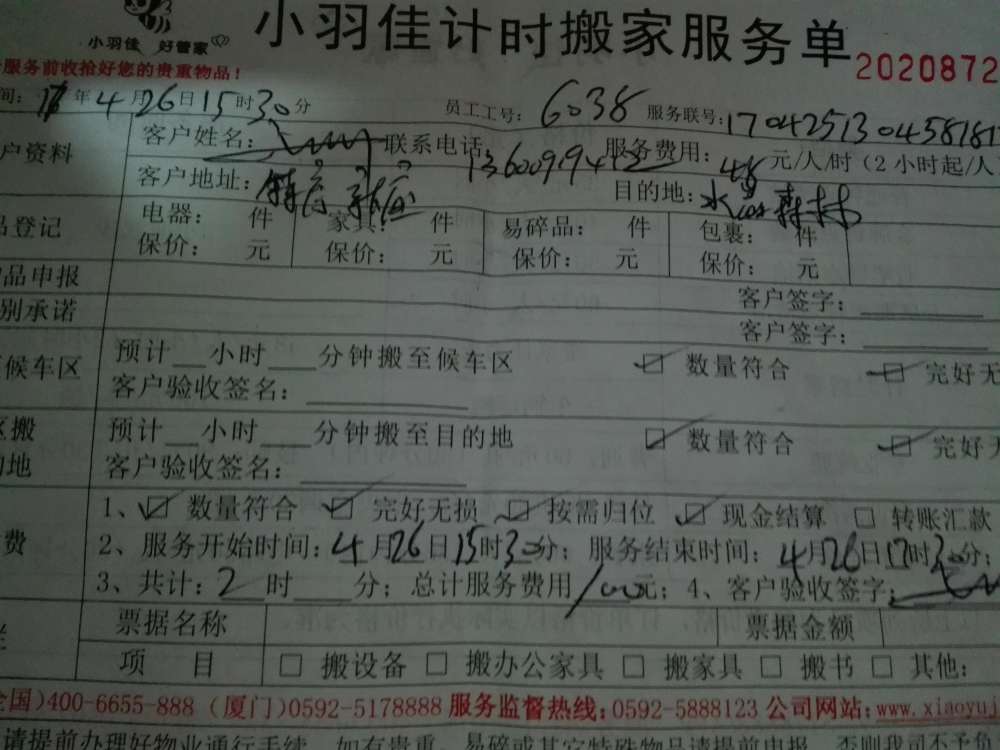 小羽佳 好管家
小羽佳计时搬家服务单
服务前收拾好您的贵重物品！
2020872
间：17年4月26日15时30分 员工工号：6038 服务联号：170425130458181
户资料 客户姓名： 联系电话：13600919412 服务费用：48元/人/时（2小时起/人
客户地址： 目的地：水 森林
品登记 电器： 件 家具： 件 易碎品： 件 包裹： 件
保价： 元 保价： 元 保价： 元 保价： 元
品申报 客户签字：
别承诺 客户签字：
候车区 预计 小时 分钟搬至候车区 ☑ 数量符合 ☑ 完好无
客户验收签名：
区搬 预计 小时 分钟搬至目的地 ☑ 数量符合 ☑ 完好无
的地 客户验收签名：
费 1、☑ 数量符合 ☑ 完好无损 ☑ 按需归位 ☑ 现金结算 □ 转账汇款
2、服务开始时间：4月26日15时30分；服务结束时间：4月26日17时30分；
3、共计：2时 分；总计服务费用 元；4、客户验收签字：
票据名称 票据金额
项 目 □ 搬设备 □ 搬办公家具 □ 搬家具 □ 搬书 □ 其他：
全国)400-6655-888 (厦门)0592-5178888 服务监督热线：0592-5888123 公司网站：www.xiaoyuj
请提前办理好物业通行手续，如有贵重、易碎或其它特殊物品请提前申报，否则我司不予负